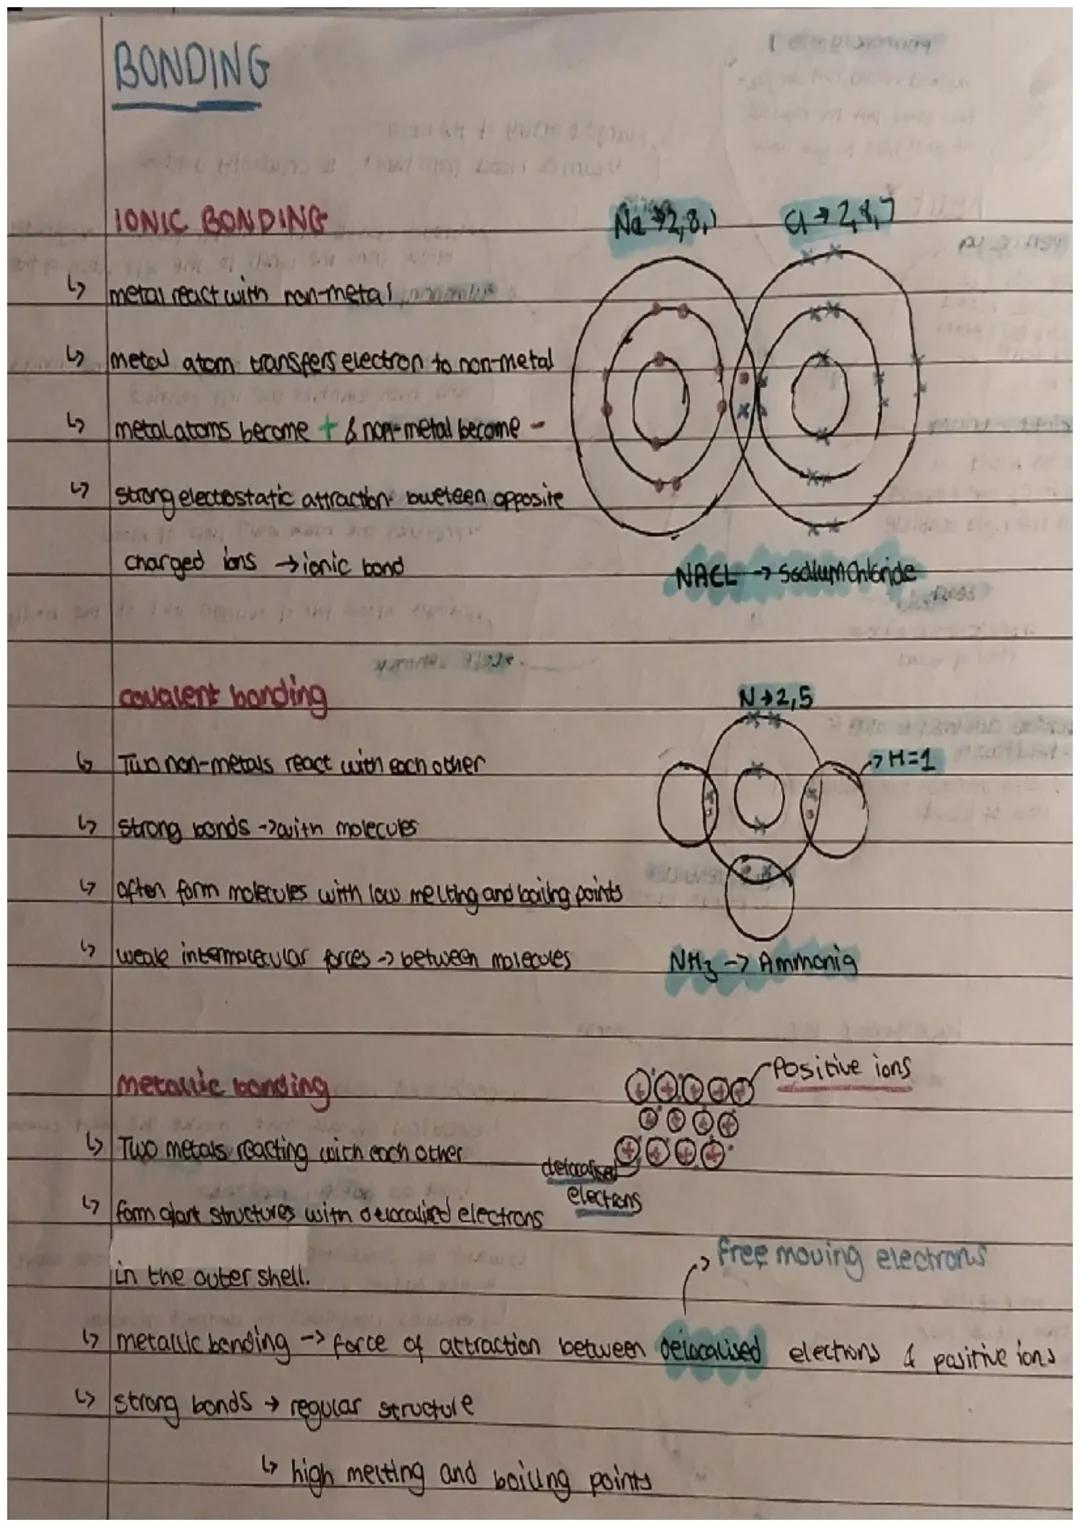 BONDING
IONIC BONDING
Na → 2,8,1
Cl → 2,8,7
↳ metal react with non-metal
↳ metal atom transfers electron to non-metal
↳ metal atoms become + & non-metal become -
↳ strong electostatic attraction bweteen opposite
charged ions → ionic bond
NACL → Sodium Chloride
covalent bonding
N → 2,5
→ H=1
↳ Two non-metals react with each other
↳ strong bonds → with molecules
↳ often form molecules with low melting and boiling points
↳ weak intermolecular forces → between molecules
NH₃ → Ammonia
metallic bonding
Positive ions
↳ Two metals reacting with each other
delocalised
electrons
↳ form giant structures with delocalised electrons
in the outer shell.
↳ free moving electrons
↳ metallic bonding → force of attraction between delocalised electrons & positive ions
↳ strong bonds → regular structure
↳ high melting and boiling points